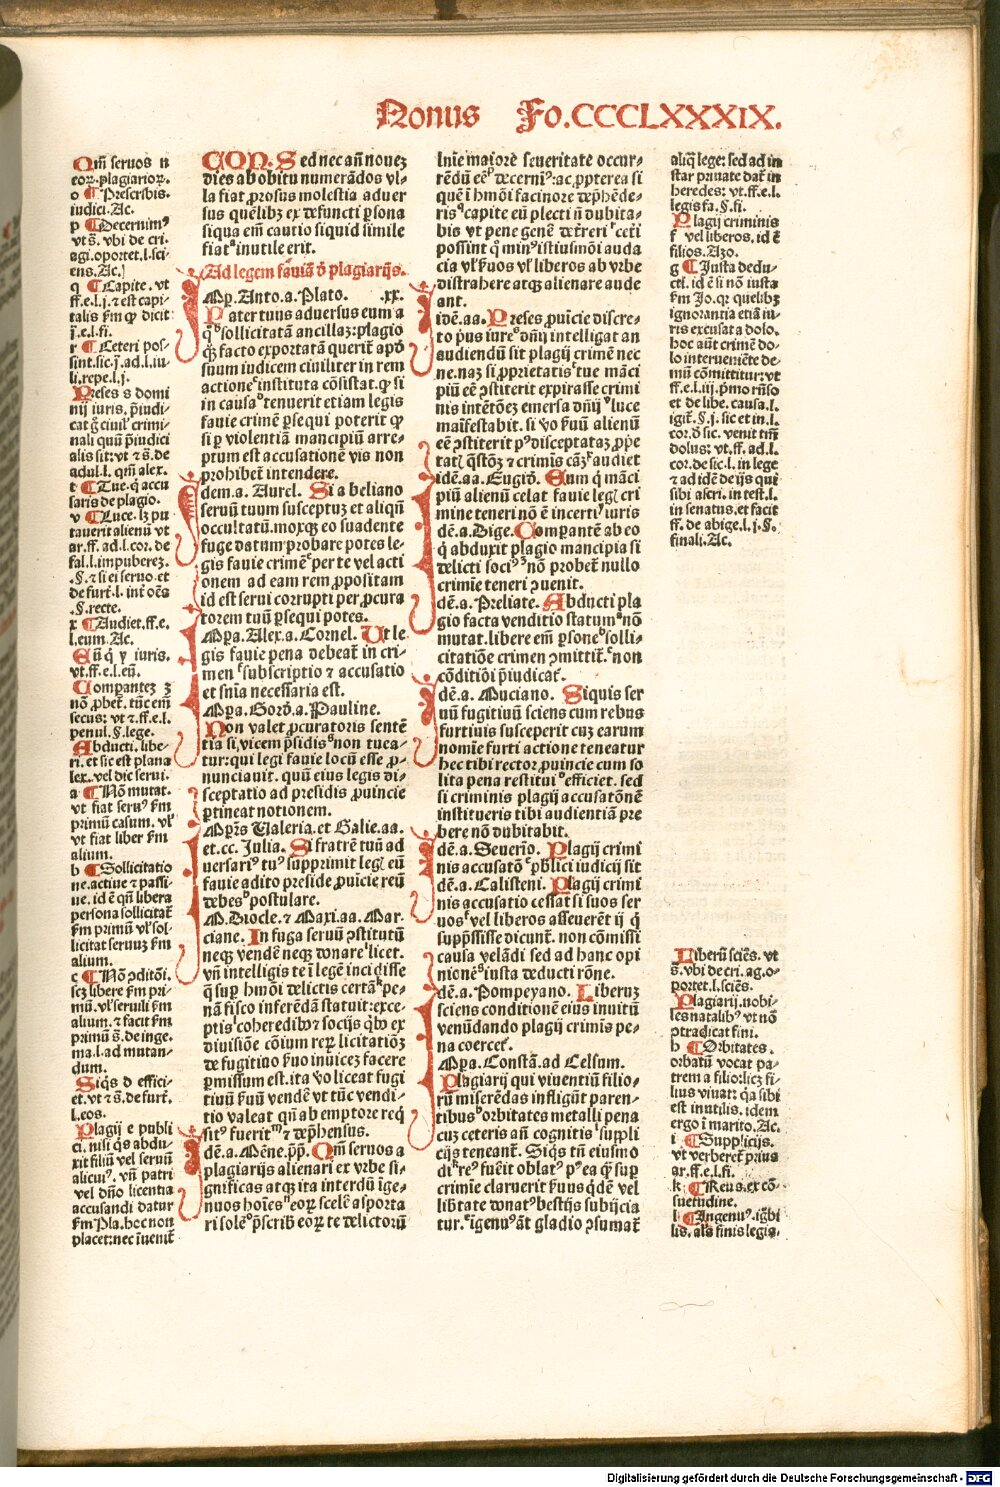 Nonus Fo.CCCLXXXIX.
Qm̄ seruos n
eoꝝ.plagiarioꝝ.
o ¶ Prescrībis.
iudici. Ac.
p ¶ Decernimꝰ
vt s̄. vbi de cri.
agi.oportet.l.sci-
ens. Ac.
q ¶ Capite. vt
ff.e.l.j. ⁊ est capi
talis s̄m q dicit
j̄.e.l.fi.
r ¶ Ceteri pos-
sint.sic.j̄.ad.l.iu-
li.repe.l.j.
Preses s domi
nij iuris. p̄iudi-
cat g̊ ciuil' crimi-
nali quū p̄iudici
alis sit: vt ⁊ s̄.de
adul.l. qm̄ alex.
t ¶ Tue. q̇ accu
saris de plagio.
v ¶ Luce. lꝫ pu
tauerit alienū vt
ar.ff. ad.l.cor. de
fal.l.impubereꝫ.
.§. ⁊ si ei seruo. et
de furt̄.l. int̄ oēs
.§.recte.
x ¶ Audiet.ff.e.
l.eum. Ac.
Eū q̇ y iuris.
vt.ff.e.l.eū.
Compantez ꝫ
nō ꝓbet̄. tūc em̄
secus: vt ⁊.ff.e.l.
penul.§.lege.
Abducti. libe-
ri. et sic est plana
lex. vel dic serui.
a ¶ Nō mutat.
vt fiat seruꝰ s̄m
primū casum. vl'
vt fiat liber s̄m
alium.
b ¶ Sollicitatio
ne.actiue ⁊ passi-
ue. id ē qn̄ libera
persona sollicitat̄
s̄m primū vl' sol-
licitat seruuꝫ s̄m
alium.
c ¶ Nō ꝯditōi.
scꝫ libere s̄m pri-
mū. vl' seruili s̄m
alium. ⁊ facit s̄m
primū s̄. de inge.
ma.l.ad mutan-
dum.
Siqs d effici-
et. vt ⁊ s̄.de furt̄.
l.eos.
Plagij e publi
ci. nisi qs abdu-
xit filiū vel seruū
alicuiꝰ. vn̄ patri
vel dn̄o licentia
accusandi datur
s̄m Pla. hoc non
placet: nec īuenit̄
CON. Sed nec an̄ noueꝫ
dies ab obitu numerādos vl-
la fiat ꝓrsus molestia aduer
sus quēlibꝫ ex defuncti ꝑsona
siqua em̄ cautio siquid simile
fiatᵃ inutile erit.
Ad legem fauiā ð plagiarijs.
Mp̄. Anto. a. Plato. .xx.
Pater tuus aduersus eum a
q̊ᵇ sollicitatā ancillaꝫ: plagio
qꝫ facto exportatā querit̄ apð
suum iudicem ciuiliter in rem
actioneᶜ instituta cōsistat. q si
in causa ᵒ tenuerit etiam legis
fauie crimē ꝑsequi poterit q
si ꝑ violentiā mancipiū arre-
ptum est accusationē vis non
prohibet̄ intendere.
dem. a. Aurel. Si a beliano
seruū tuum susceptuꝫ et aliqn̄
occultatū. moxqꝫ eo suadente
fuge datum ꝓbare potes le-
gis fauie crimēᵉ per te vel acti
onem ad eam rem ꝓpositam
id est serui corrupti per ꝓcura
torem tuū ꝑsequi potes.
Mp̄a. Alex. a. Cornel. Ut le
gis fauie pena debeat̄ in cri-
men ᶠ subscriptio ⁊ accusatio
et sn̄ia necessaria est.
Mp̄a. Gorð. a. Pauline.
Non valet ꝓcuratoris sentē
tia si. vicem p̄sidisᵍ non tuea-
tur: qui legi fauie locū esse ꝓ-
nunciauit. quū eius legis di-
sceptatio ad presidis ꝓuincie
ꝑtineat notionem.
Mp̄es Valeria. et Galie. aa.
et. cc. Julia. Si fratrē tuū ad
uersariꝰ tuꝰ supprimit legꝭ eū
fauie adito preside ꝓuicie reū
debesᵒ postulare.
M. Diocle. ⁊ Maxi. aa. Mar-
ciane. In fuga seruū ꝯstitutū
neqꝫ vendē neqꝫ donare ͥ licet.
vn̄ intelligis te ī legē incidisse
q̄ suꝑ hm̄oi delictis certā ᵏ pe-
nā fisco inferēdā statuit: exce-
ptis ˡ coheredibꝰ ⁊ socijs q̇bꝰ ex
diuisiōe cōium reꝝ licitatiōꝫ
de fugitiuo s̄uo inuiceꝫ facere
ꝑmissum est. ita vo liceat fugi
tiuū s̄uū vendē vt tūc vendi-
tio valeat qn̄ ab emptore reqͥ
situꝰ fueritᵐ ⁊ dep̄hensus.
dē. a. Mēne. p̄p. Qm̄ seruos a
plagiarijs alienari ex vrbe si-
gnificas atqꝫ ita interdū ige-
nuos hoīesⁿ eoꝝ scelē asporta
ri soleᵒ p̄scribꝭ eoꝝ te delictorū
lnīe maiorē seueritate occur-
rēdū eē ͬ decernīꝰ: ac ꝓpterea si
quē ī hm̄oi facinore dep̄hēde-
risᑫ capite eū plecti n̄ dubita-
bis vt pene genē det̄reri ͬ ceti
possint q̊ minꝰ istiusmōi auda
cia vl' s̄uos vl' liberos ab vrbe
distrahere atqꝫ alienare aude
ant.
idē. aa. Preses ꝓuicie discre-
to p̊us iureˢ dn̄ij intelligat an
audiendū sit plagij crimē nec
ne. naꝫ si ꝓprietatisᵗ tue mācī
piū eē ꝯstiterit expirasse crimi
nis intētōeꝫ emersa dn̄ijᵛ luce
maīfestabit. si vo s̄uū alienū
eē ꝯstiterit pꝰ disceptataꝫ ꝓpe
tatꝭ qstōꝫ ⁊ crimīs cāꝫˣ audiet
idē. aa. Eugrō. Eum q̇ mācī
piū alienū celat fauie legꝭ cri
mine teneri nō ē incertiʸ iuris
dē. a. Dige. Comparantē ab eo
q̇ abduxit plagio mancipia si
delicti sociꝰᶻ nō probet̄ nullo
crimīe teneri ꝯuenit.
dē. a. Preliate. Abducti pla
gio facta venditio statumᵃ nō
mutat. libere em̄ ꝑsoneᵇ solli-
citatiōe crimen ꝯmittit̄.ᶜ non
cōditiōi p̄iudicat̄.
dē. a. Muciano. Siquis ser
uū fugitiuū sciens cum rebus
furtiuis susceperit cuꝫ earum
nomīe furti actione teneatur
hec tibi rector ꝓuincie cum so
lita pena restituiᵈ efficiet. sed
si criminis plagij accusatōnē
institueris tibi audientiā pre
bere nō dubitabit.
dē. a. Seuerīo. Plagij crimi
nis accusatōᵉ pb̄lici iudicij sit
dē. a. Calisteni. Plagij crimi
nis accusatio cessat si suos ser
uosᶠ vel liberos asseuerēt ij q̇
suppssisse dicunt̄. non cōmissi
causa velādi sed ad hanc opi
nionēᵍ iusta deducti rōne.
dē. a. Pompeyano. Liberuꝫ
sciens conditionē eius inuitū
venūdando plagij crimīs pe-
na coercet̄.
Mp̄a. Constā. ad Celsum.
Plagiarij qui viuentiū filio-
rū miserēdas infligūt paren-
tibusʰ orbitates metalli pena
cuꝫ ceteris an̄ cognitisⁱ suppli
cijs teneant̄. Siqs tn̄ eiusmo
diᵏ re ͬ fuēit oblatꝰ pꝰ ea q̄ suꝑ
crimīe claruerit s̄uusqdē vel
libtate donatꝰ bestijs subijcia
tur.ˡ īgenuꝰ āt gladio ꝯsumat̄
aliq̄ lege: sed ad in
star priuate dat̄ in
heredes: vt.ff.e.l.
legis fa.§.fi.
Plagij criminis
f vel liberos. id ē
filios. Azo.
g ¶ Justa dedu-
cti. id ē si nō iusta
s̄m Jo. qꝫ quelibꝫ
ignorantia etiā iu-
ris excusat a dolo.
hoc aūt crimē do-
lo interueniēte de-
mū cōmittitur: vt
ff.e.l.iij. p̄mo rn̄so
et de libe. causa.l.
igit̄.§.j. sic et in.l.
cor. ð sic. venit tm̄
dolus: vt.ff. ad.l.
cor. de sic.l. in lege
⁊ ad idē de ijs qui
sibi ascri. in test.l.
in senatus. et facit
ff. de abige.l.j.§.
finali. Ac.
Liberū sciēs. vt
s̄. vbi de cri. ag. o-
portet.l.sciēs.
Plagiarij. nobi-
les natalibꝰ vt nō
ꝯtradicat fini.
h ¶ Orbitates.
orbatū vocat pa-
trem a filio: licꝫ fi-
lius viuat: q̇a sibi
est inutilis. idem
ergo ī marito. Ac.
i ¶ Supplicijs.
vt verberet̄ prius
ar.ff.e.l.fi.
k ¶ Reus. ex cō-
suetudine.
l ¶ Ingenuꝰ. ignobi
lis. als̄ finis legis.
Digitalisierung gefördert durch die Deutsche Forschungsgemeinschaft - DFG